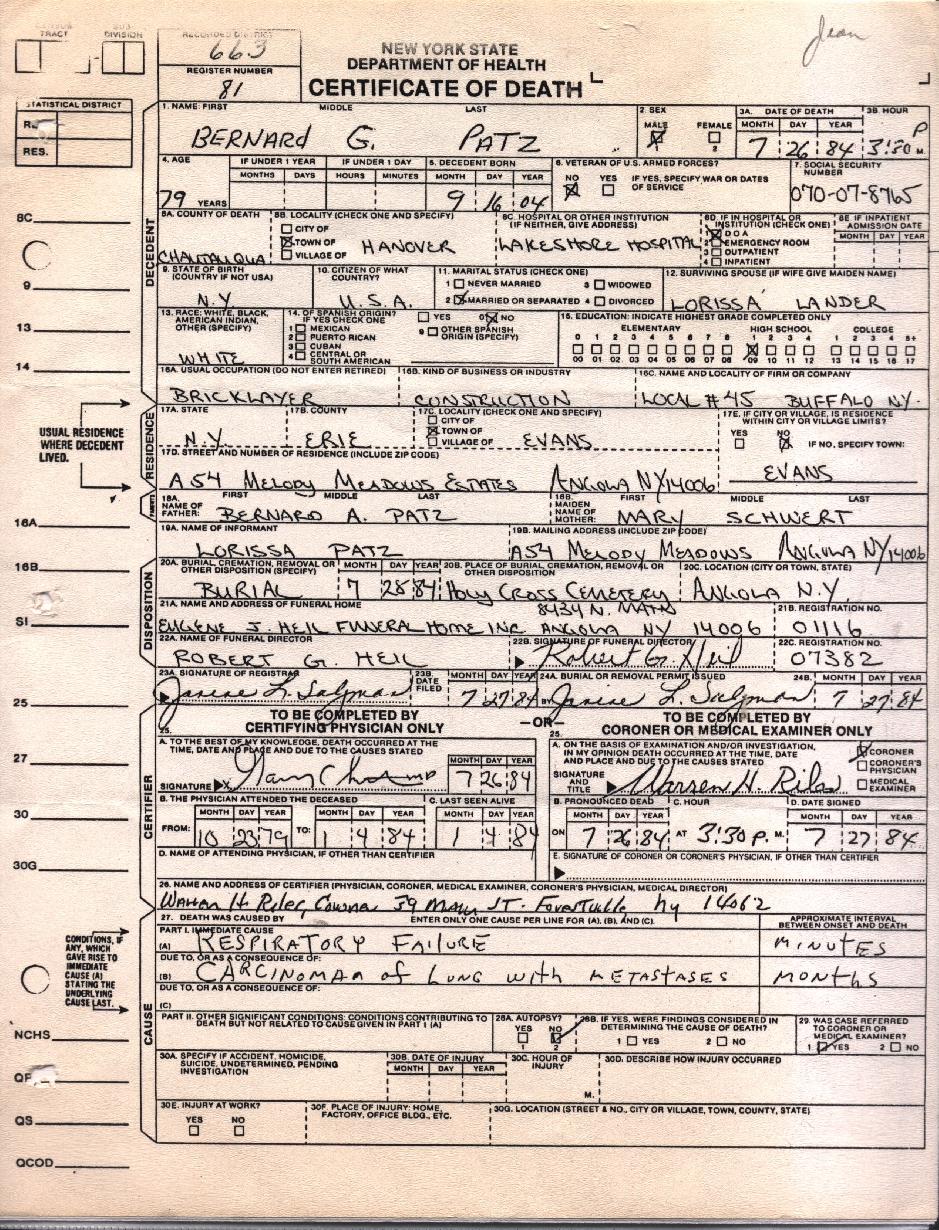 Jean
TRACT DIVISION
RECORDED DISTRICT
663
REGISTER NUMBER
81
NEW YORK STATE
DEPARTMENT OF HEALTH
CERTIFICATE OF DEATH
STATISTICAL DISTRICT
RES.
1. NAME: FIRST MIDDLE LAST
BERNARD G. PATZ
2. SEX
MALE FEMALE
3A. DATE OF DEATH
MONTH DAY YEAR
7 26 84
3B. HOUR
3:30 P M.
4. AGE
79 YEARS
IF UNDER 1 YEAR
MONTHS DAYS
IF UNDER 1 DAY
HOURS MINUTES
5. DECEDENT BORN
MONTH DAY YEAR
9 16 04
6. VETERAN OF U.S. ARMED FORCES?
NO YES IF YES, SPECIFY WAR OR DATES OF SERVICE
7. SOCIAL SECURITY NUMBER
070-07-8765
DECEDENT
8A. COUNTY OF DEATH
CHAUTAUQUA
8B. LOCALITY (CHECK ONE AND SPECIFY)
CITY OF
TOWN OF HANOVER
VILLAGE OF
8C. HOSPITAL OR OTHER INSTITUTION
(IF NEITHER, GIVE ADDRESS)
LAKESHORE HOSPITAL
8D. IF IN HOSPITAL OR INSTITUTION (CHECK ONE)
1 DOA
2 EMERGENCY ROOM
3 OUTPATIENT
4 INPATIENT
8E. IF INPATIENT ADMISSION DATE
MONTH DAY YEAR
9. STATE OF BIRTH
(COUNTRY IF NOT USA)
N.Y.
10. CITIZEN OF WHAT COUNTRY?
U.S.A.
11. MARITAL STATUS (CHECK ONE)
1 NEVER MARRIED 3 WIDOWED
2 MARRIED OR SEPARATED 4 DIVORCED
12. SURVIVING SPOUSE (IF WIFE GIVE MAIDEN NAME)
LORISSA LANDER
13. RACE: WHITE, BLACK, AMERICAN INDIAN, OTHER (SPECIFY)
WHITE
14. OF SPANISH ORIGIN?
IF YES CHECK ONE YES 0 NO
1 MEXICAN
2 PUERTO RICAN
3 CUBAN
4 CENTRAL OR SOUTH AMERICAN
9 OTHER SPANISH ORIGIN (SPECIFY)
15. EDUCATION: INDICATE HIGHEST GRADE COMPLETED ONLY
ELEMENTARY HIGH SCHOOL COLLEGE
0 1 2 3 4 5 6 7 8 1 2 3 4 1 2 3 4 5+
00 01 02 03 04 05 06 07 08 09 10 11 12 13 14 15 16 17
16A. USUAL OCCUPATION (DO NOT ENTER RETIRED)
BRICKLAYER
16B. KIND OF BUSINESS OR INDUSTRY
CONSTRUCTION
16C. NAME AND LOCALITY OF FIRM OR COMPANY
LOCAL #45 BUFFALO NY.
USUAL RESIDENCE
WHERE DECEDENT
LIVED.
RESIDENCE
17A. STATE
N.Y.
17B. COUNTY
ERIE
17C. LOCALITY (CHECK ONE AND SPECIFY)
CITY OF
TOWN OF
VILLAGE OF EVANS
17E. IF CITY OR VILLAGE, IS RESIDENCE WITHIN CITY OR VILLAGE LIMITS?
YES NO IF NO, SPECIFY TOWN:
EVANS
17D. STREET AND NUMBER OF RESIDENCE (INCLUDE ZIP CODE)
A54 MELODY MEADOWS ESTATES ANGOLA NY 14006
PARENTS
18A. NAME OF FATHER: FIRST MIDDLE LAST
BERNARD A. PATZ
18B. MAIDEN NAME OF MOTHER: FIRST MIDDLE LAST
MARY SCHWERT
19A. NAME OF INFORMANT
LORISSA PATZ
19B. MAILING ADDRESS (INCLUDE ZIP CODE)
A54 MELODY MEADOWS ANGOLA NY 14006
DISPOSITION
20A. BURIAL, CREMATION, REMOVAL OR OTHER DISPOSITION (SPECIFY)
BURIAL
MONTH DAY YEAR
7 28 84
20B. PLACE OF BURIAL, CREMATION, REMOVAL OR OTHER DISPOSITION
HOLY CROSS CEMETERY
20C. LOCATION (CITY OR TOWN, STATE)
ANGOLA N.Y.
21A. NAME AND ADDRESS OF FUNERAL HOME
8434 N. MAIN
EUGENE J. HEIL FUNERAL HOME INC. ANGOLA NY 14006
21B. REGISTRATION NO.
01116
22A. NAME OF FUNERAL DIRECTOR
ROBERT G. HEIL
22B. SIGNATURE OF FUNERAL DIRECTOR
Robert G. Heil
22C. REGISTRATION NO.
07382
23A. SIGNATURE OF REGISTRAR
Janine L. Salzman
23B. DATE FILED
MONTH DAY YEAR
7 27 84
24A. BURIAL OR REMOVAL PERMIT ISSUED
BY Janine L. Salzman
24B. MONTH DAY YEAR
7 27 84
CERTIFIER
25. TO BE COMPLETED BY
CERTIFYING PHYSICIAN ONLY
—OR—
25. TO BE COMPLETED BY
CORONER OR MEDICAL EXAMINER ONLY
A. TO THE BEST OF MY KNOWLEDGE, DEATH OCCURRED AT THE TIME, DATE AND PLACE AND DUE TO THE CAUSES STATED
SIGNATURE
MONTH DAY YEAR
7 26 84
A. ON THE BASIS OF EXAMINATION AND/OR INVESTIGATION, IN MY OPINION DEATH OCCURRED AT THE TIME, DATE AND PLACE AND DUE TO THE CAUSES STATED
CORONER
CORONER'S PHYSICIAN
MEDICAL EXAMINER
SIGNATURE AND TITLE Warren H. Riles
B. THE PHYSICIAN ATTENDED THE DECEASED
MONTH DAY YEAR MONTH DAY YEAR
FROM: 10 23 79 TO: 1 4 84
C. LAST SEEN ALIVE
MONTH DAY YEAR
1 4 84
B. PRONOUNCED DEAD
MONTH DAY YEAR
ON 7 26 84
C. HOUR
AT 3:30 P. M.
D. DATE SIGNED
MONTH DAY YEAR
7 27 84
D. NAME OF ATTENDING PHYSICIAN, IF OTHER THAN CERTIFIER
E. SIGNATURE OF CORONER OR CORONER'S PHYSICIAN, IF OTHER THAN CERTIFIER
26. NAME AND ADDRESS OF CERTIFIER (PHYSICIAN, CORONER, MEDICAL EXAMINER, CORONER'S PHYSICIAN, MEDICAL DIRECTOR)
Warren H. Riles, Coroner 39 Main ST. Forestville Ny 14062
CAUSE
CONDITIONS, IF ANY, WHICH GAVE RISE TO IMMEDIATE CAUSE (A) STATING THE UNDERLYING CAUSE LAST.
27. DEATH WAS CAUSED BY ENTER ONLY ONE CAUSE PER LINE FOR (A), (B), AND (C).
APPROXIMATE INTERVAL BETWEEN ONSET AND DEATH
PART I. IMMEDIATE CAUSE
(A) RESPIRATORY FAILURE MINUTES
DUE TO, OR AS A CONSEQUENCE OF:
(B) CARCINOMAA of LUNG WITH METASTASES MONTHS
DUE TO, OR AS A CONSEQUENCE OF:
(C)
PART II. OTHER SIGNIFICANT CONDITIONS: CONDITIONS CONTRIBUTING TO DEATH BUT NOT RELATED TO CAUSE GIVEN IN PART I (A)
28A. AUTOPSY?
YES NO
1 2
28B. IF YES, WERE FINDINGS CONSIDERED IN DETERMINING THE CAUSE OF DEATH?
1 YES 2 NO
29. WAS CASE REFERRED TO CORONER OR MEDICAL EXAMINER?
1 YES 2 NO
30A. SPECIFY IF ACCIDENT, HOMICIDE, SUICIDE, UNDETERMINED, PENDING INVESTIGATION
30B. DATE OF INJURY
MONTH DAY YEAR
30C. HOUR OF INJURY
M.
30D. DESCRIBE HOW INJURY OCCURRED
30E. INJURY AT WORK?
YES NO
30F. PLACE OF INJURY: HOME, FACTORY, OFFICE BLDG., ETC.
30G. LOCATION (STREET & NO., CITY OR VILLAGE, TOWN, COUNTY, STATE)
8C
9
13
14
16A
16B
SI
25
27
30
30G
NCHS
QS
QCOD